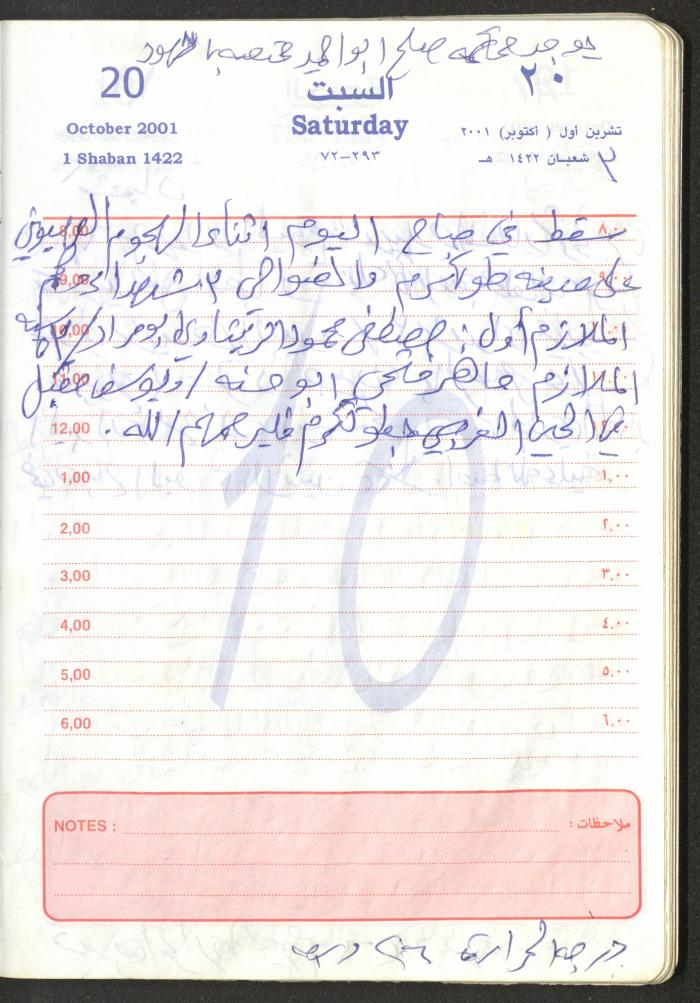 يوجد محكمة صلح ابو احمد
20
السبت
٢٠
October 2001
Saturday
تشرين أول ( أكتوبر) ٢٠٠١
1 Shaban 1422
٧٢-٢٩٣
٣ شعبان ١٤٢٢ هـ
سقط في صباح اليوم اثناء الهجوم الصهيوني
على مدينه طولكرم والضواحي ٣ شهداء
الملازم أول : مصطفى محمود ابو مراد
الملازم ماهر فتحي ابو حسنه / ويوسف مقبل
من الحي الغربي بطولكرم فليرحمهم الله .
8,00 ٨,٠٠
9,00 ٩,٠٠
10,00
11,00
12,00
1,00 ١,٠٠
2,00 ٢,٠٠
3,00 ٣,٠٠
4,00 ٤,٠٠
5,00 ٥,٠٠
6,00 ٦,٠٠
10
NOTES : ملاحظات :
درجه الحرارة درجه